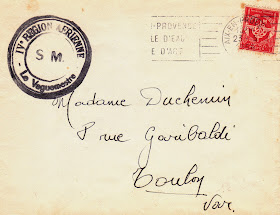 IVe REGION AERIENNE
S M.
Le Vaguemestre
PROVENCE
LE D'EAU
E D'ART
Madame Duchemin
8 rue Garibaldi
Toulon
Var.